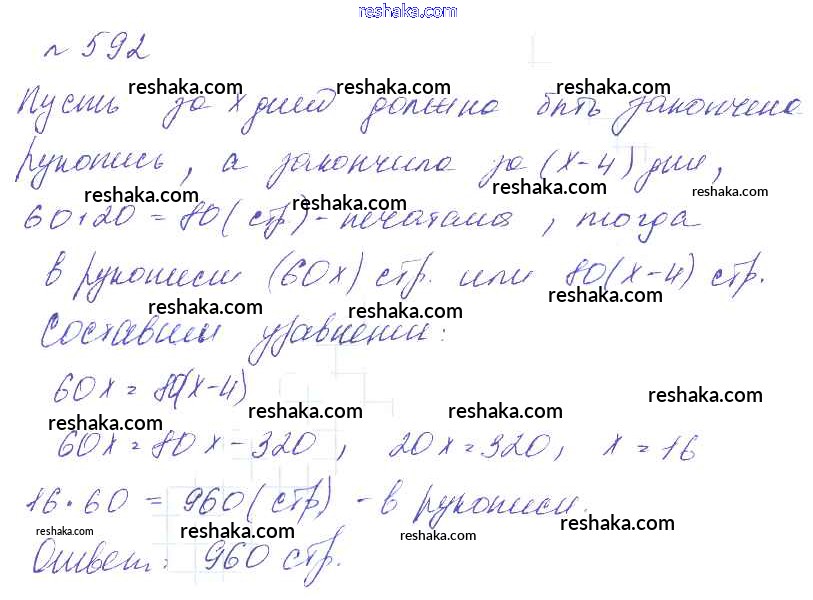 reshaka.com
№ 592
reshaka.com reshaka.com reshaka.com
Пусть за x дней должна быть закончена
рукопись, а закончила за (x-4) дня,
reshaka.com reshaka.com reshaka.com reshaka.com
60+20 = 80 (стр) - печатала, тогда
в рукописи (60x) стр. или 80(x-4) стр.
reshaka.com reshaka.com reshaka.com
Составим уравнение:
60x = 80(x-4)
reshaka.com reshaka.com reshaka.com reshaka.com
60x = 80x - 320, 20x = 320, x = 16
16·60 = 960 (стр) - в рукописи.
reshaka.com reshaka.com reshaka.com reshaka.com
Ответ: 960 стр.